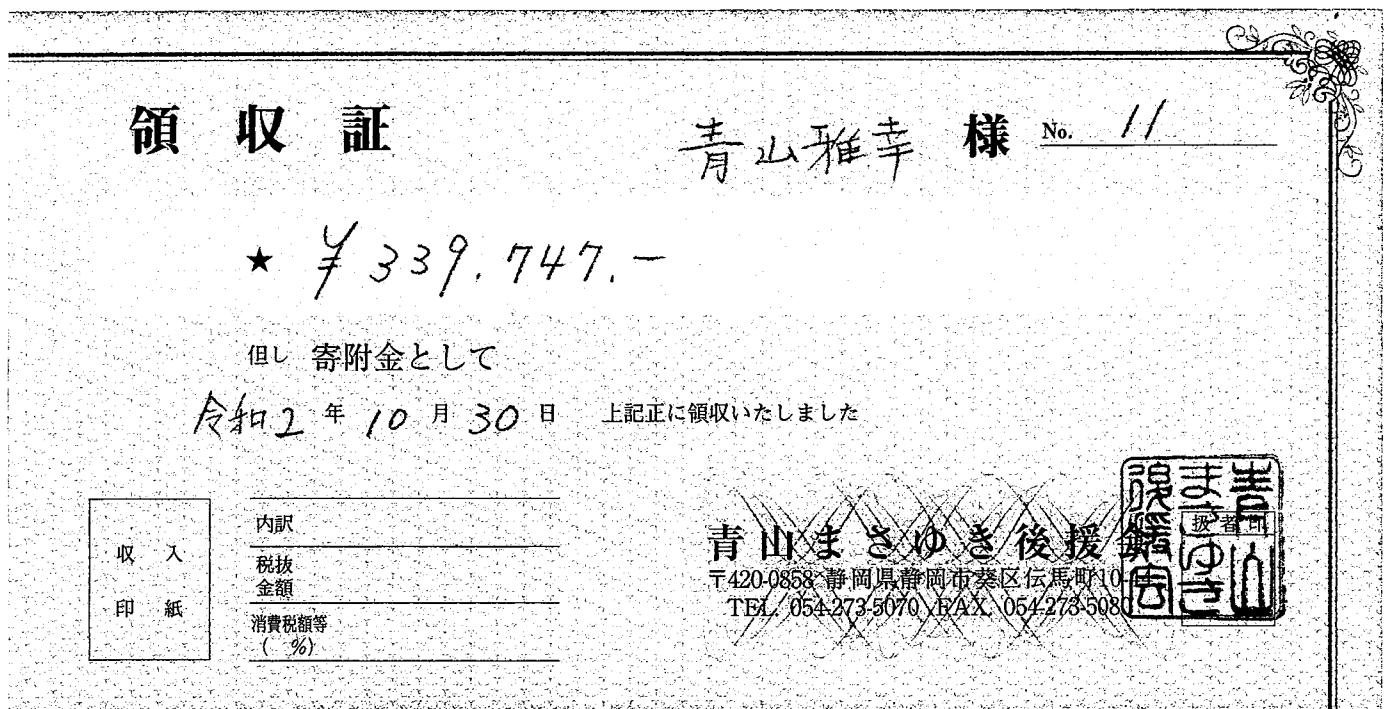 領収証 青山雅幸 様 No. 11
★ ¥339.747.-
但し 寄附金として
令和2年10月30日 上記正に領収いたしました
収入
印紙
内訳
税抜
金額
消費税額等
( %)
青山まさゆき後援
〒420-0858 静岡県静岡市葵区伝馬町10-
TEL. 054-273-5070 FAX. 054-273-508
扱者印
青山
まさゆき
後援会